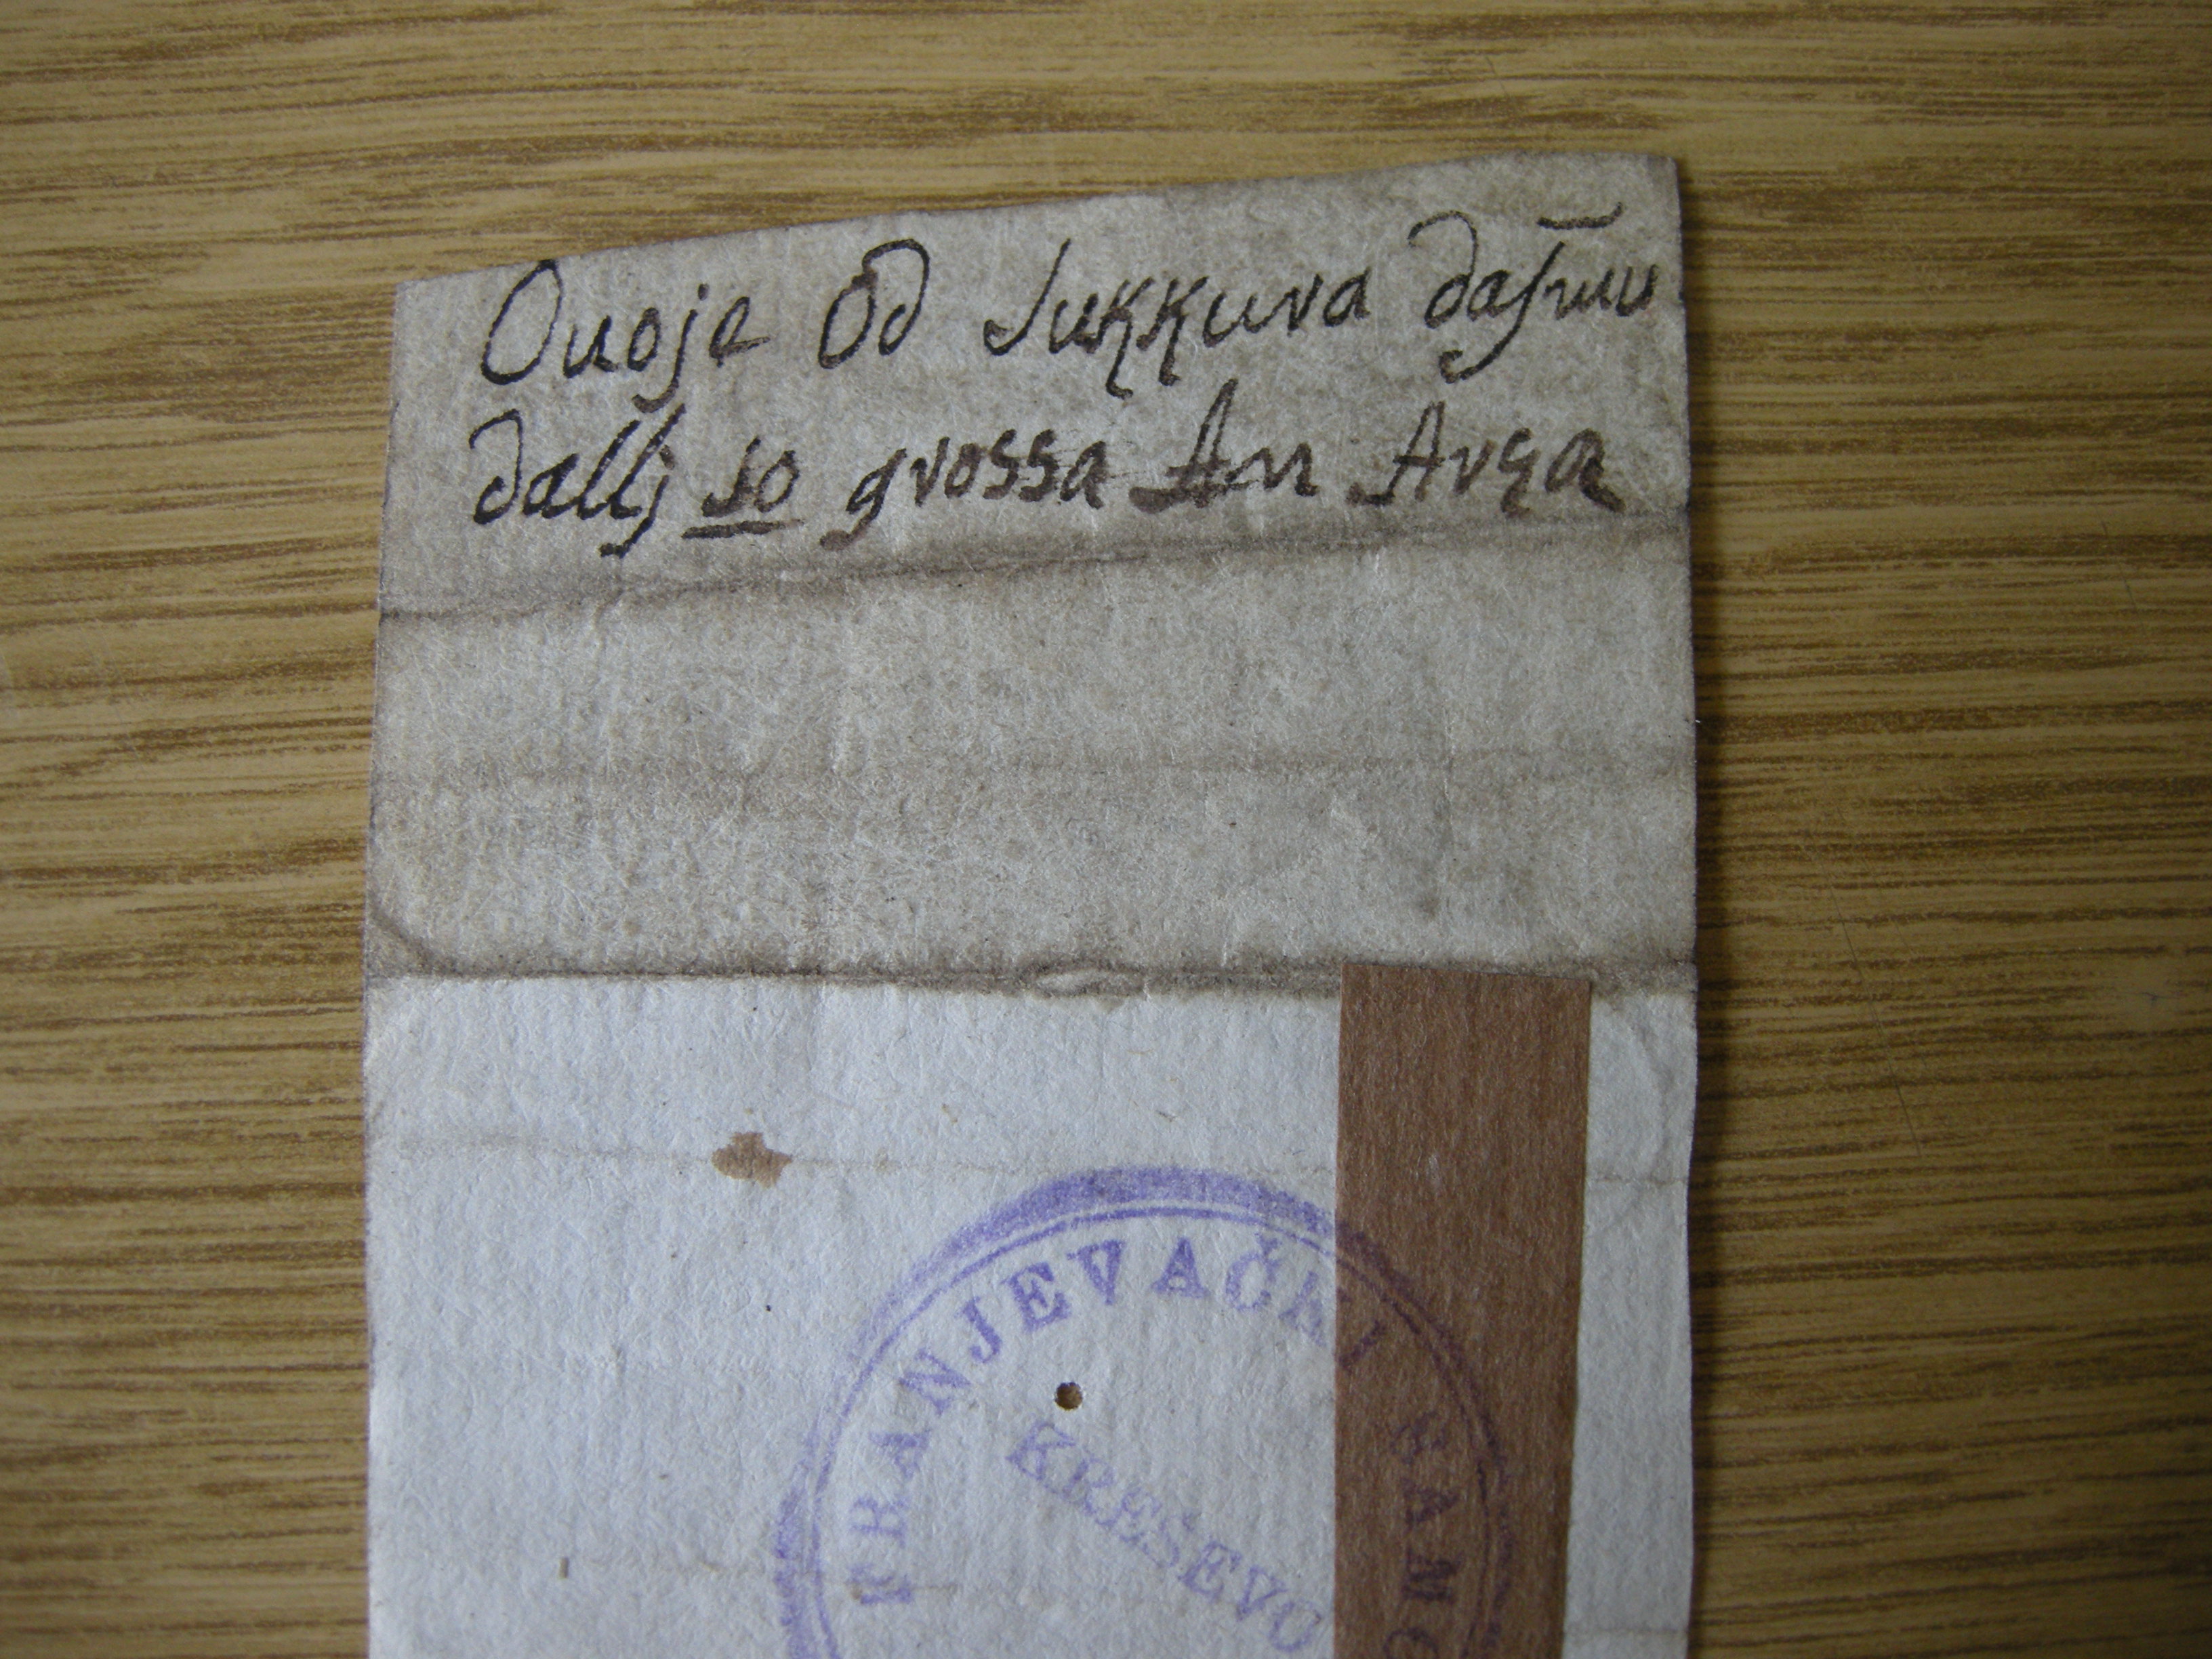 Ouoje Od Jukkuva dasmu
dallj 10 grossa An Avga
FRANJEVAČKI SAMO
KREŠEVO